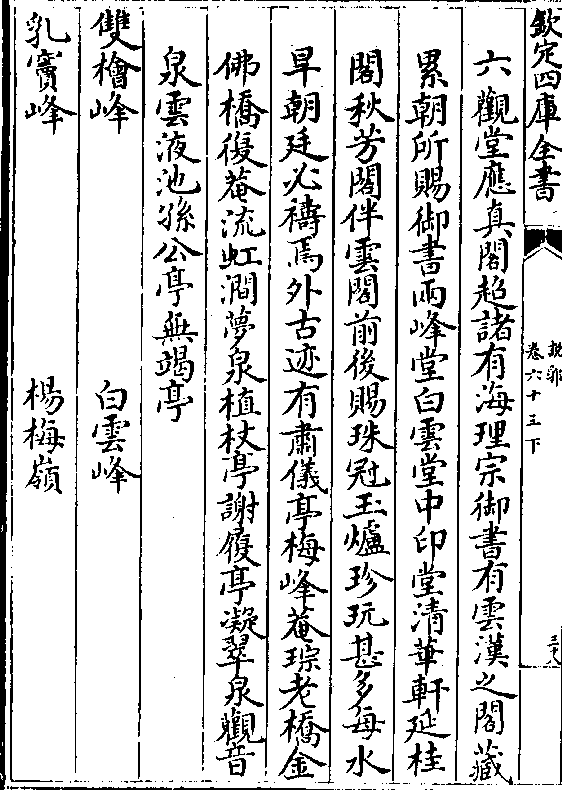 欽定四庫全書
說郛
卷六十五下
三十八
六觀堂應真閣超諸有海理宗御書有雲漢之閣藏
累朝所賜御書兩峰堂白雲堂中印堂清華軒延桂
閣秋芳閣伴雲閣前後賜珠冠玉爐珍玩甚多每水
旱朝廷必禱焉外古迹有肅儀亭梅峰菴琮老橋金
佛橋復菴流虹澗夢泉植杖亭謝履亭凝翠泉觀音
泉雲液池孫公亭無竭亭
雙檜峰　白雲峰
乳竇峰　楊梅嶺